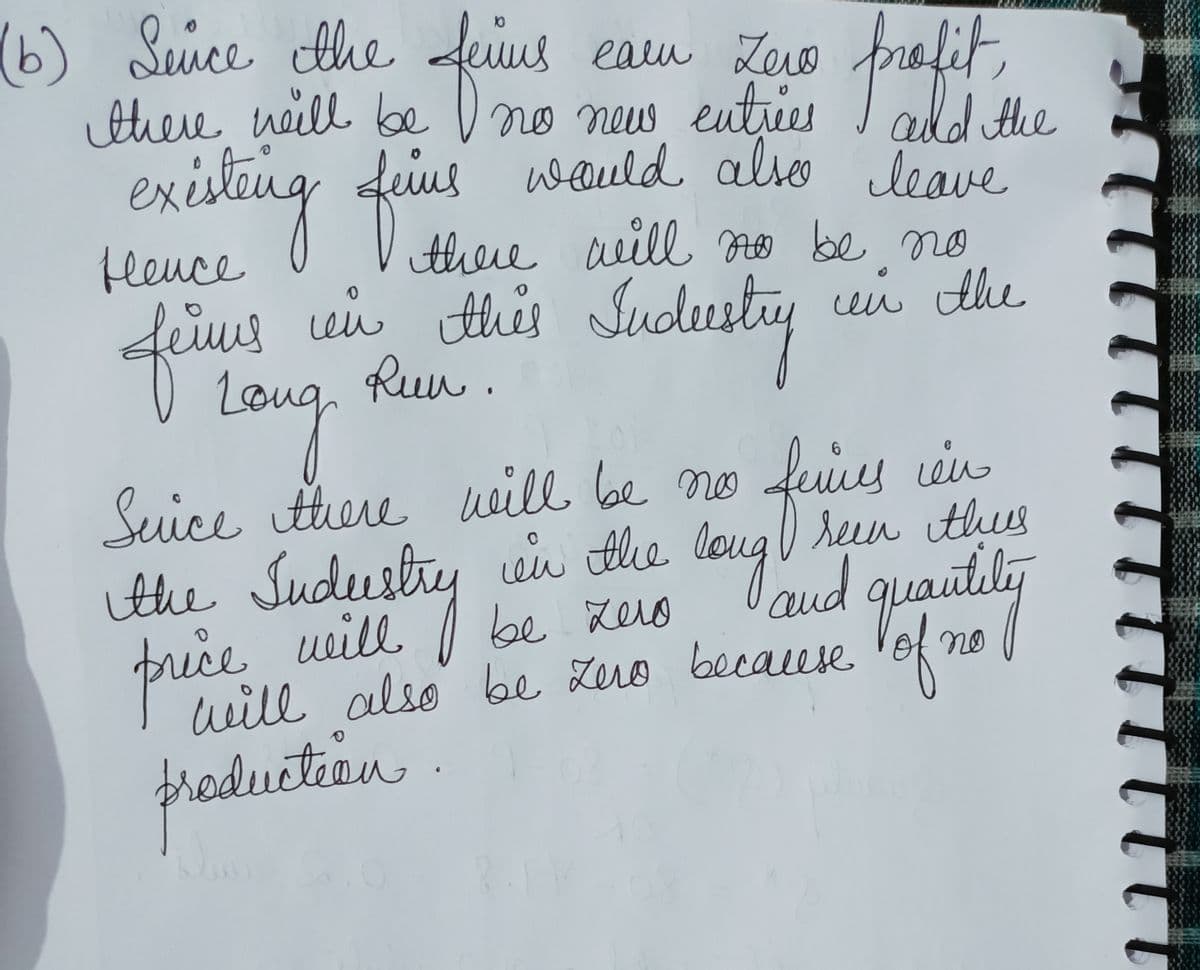 (b) Since the firms earn zero profit,
there will be no new entries and the
existing firms would also leave
Hence there will no be no
firms in this Industry in the
Long Run.
Since there will be no firms in
the Industry in the long run thus
price will be zero and quantity
will also be zero because of no
production.